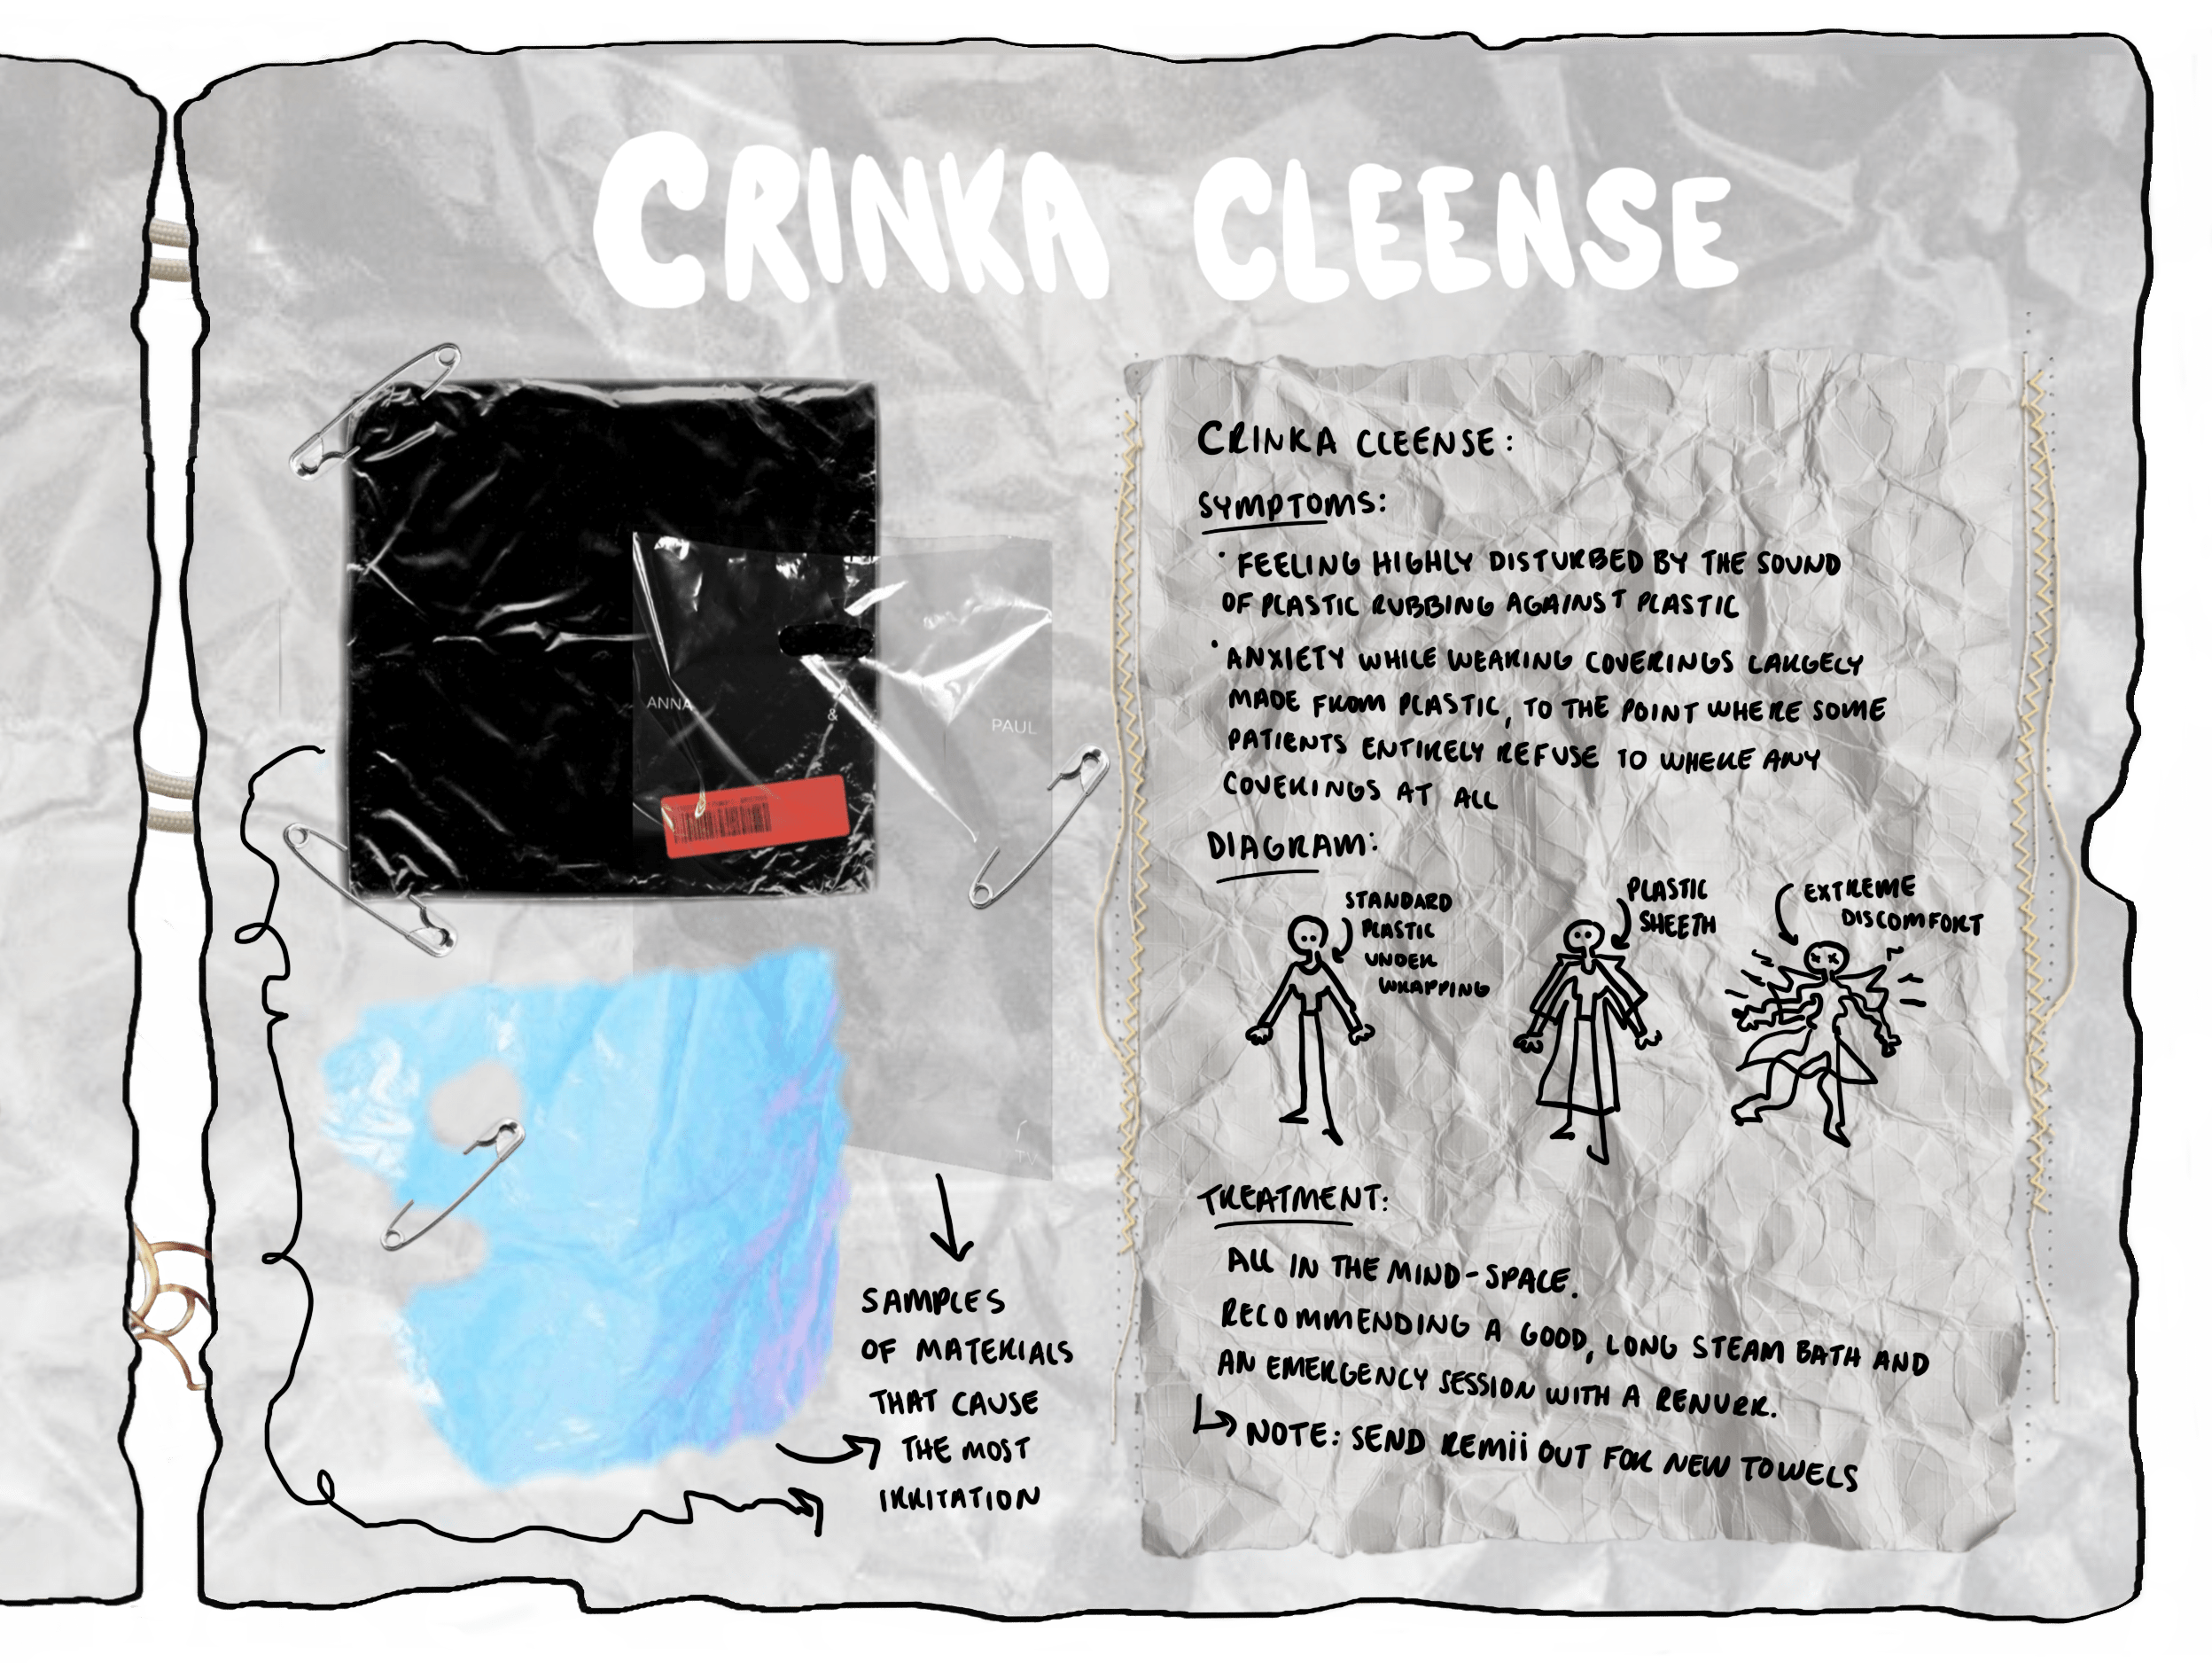 CRINKA CLEENSE
ANNA
&
PAUL
SAMPLES
OF MATERIALS
THAT CAUSE
THE MOST
IRRITATION
CRINKA CLEENSE:
SYMPTOMS:
• FEELING HIGHLY DISTURBED BY THE SOUND
OF PLASTIC RUBBING AGAINST PLASTIC
• ANXIETY WHILE WEARING COVERINGS LARGELY
MADE FROM PLASTIC, TO THE POINT WHERE SOME
PATIENTS ENTIRELY REFUSE TO WHERE ANY
COVERINGS AT ALL
DIAGRAM:
STANDARD
PLASTIC
UNDER
WRAPPING
PLASTIC
SHEETH
EXTREME
DISCOMFORT
TREATMENT:
ALL IN THE MIND-SPACE.
RECOMMENDING A GOOD, LONG STEAM BATH AND
AN EMERGENCY SESSION WITH A RENURR.
NOTE: SEND REMii OUT FOR NEW TOWELS